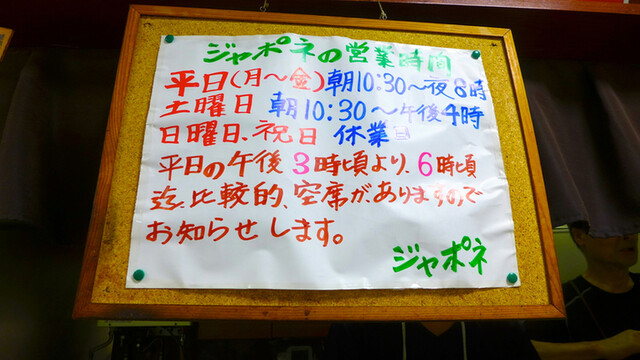 ジャポネの営業時間
平日(月〜金)朝10:30〜夜8時
土曜日 朝10:30〜午後4時
日曜日、祝日 休業日
平日の午後3時頃より、6時頃
迄、比較的、空席が、ありますので
お知らせします。
ジャポネ